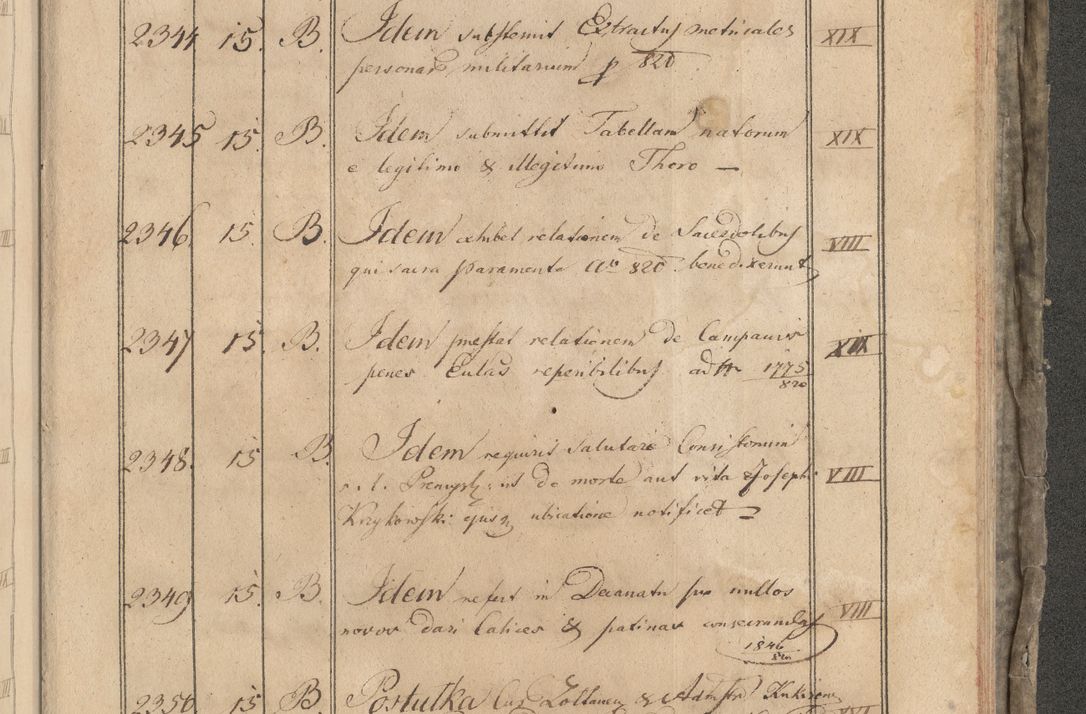 2344 15. B. Idem substernit Extractus metricales XIX
personar militarium p 820
2345 15. B. Idem submittit Tabellam natorum XIX
e legitimo & illegitimo Thoro —
2346 15. B. Idem exhibet relationem de Sacerdotibus VIII
qui sacra paramenta Ao 820 benedixerunt
2347 15. B. Idem prestat relationem de Campanis XIX
penes Eccl͞as reperibilibus ad N 1775
820
2348. 15 B. Idem requirit salutare Consistorium VIII
r. l. Premysl: ut de morte aut vita Josephi
Krzykowski ejusq ubicatione notificet —
2349 15. B. Idem refert in Decanatu suo nullos VIII
novos dari Calices & patinas consecrandas
1846
820
2350 15 B. Postulka Cur Zoltanen & Admstr XVI